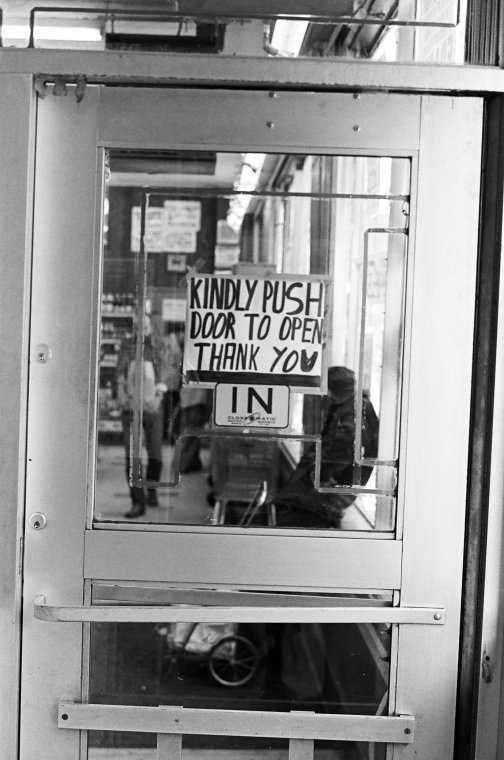 KINDLY PUSH
DOOR TO OPEN
THANK YOU
IN